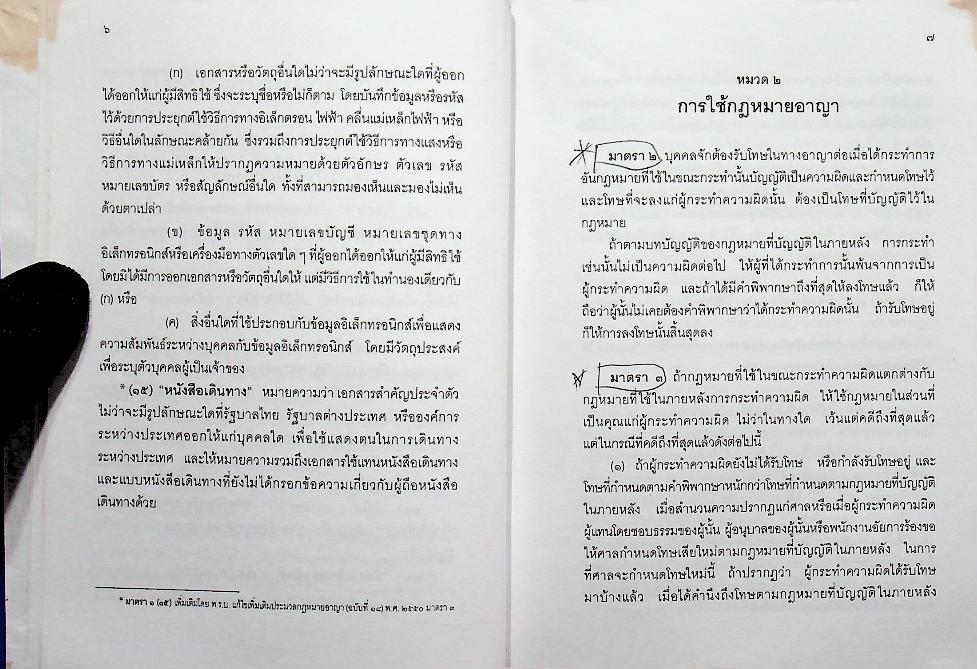 ๖
(ก) เอกสารหรือวัตถุอื่นใดไม่ว่าจะมีรูปลักษณะใดที่ผู้ออก
ได้ออกให้แก่ผู้มีสิทธิใช้ ซึ่งจะระบุชื่อหรือไม่ก็ตาม โดยบันทึกข้อมูลหรือรหัส
ไว้ด้วยการประยุกต์ใช้วิธีการทางอิเล็กตรอน ไฟฟ้า คลื่นแม่เหล็กไฟฟ้า หรือ
วิธีอื่นใดในลักษณะคล้ายกัน ซึ่งรวมถึงการประยุกต์ใช้วิธีการทางแสงหรือ
วิธีการทางแม่เหล็กให้ปรากฏความหมายด้วยตัวอักษร ตัวเลข รหัส
หมายเลขบัตร หรือสัญลักษณ์อื่นใด ทั้งที่สามารถมองเห็นและมองไม่เห็น
ด้วยตาเปล่า
(ข) ข้อมูล รหัส หมายเลขบัญชี หมายเลขชุดทาง
อิเล็กทรอนิกส์หรือเครื่องมือทางตัวเลขใด ๆ ที่ผู้ออกได้ออกให้แก่ผู้มีสิทธิใช้
โดยมิได้มีการออกเอกสารหรือวัตถุอื่นใดให้ แต่มีวิธีการใช้ในทำนองเดียวกับ
(ก) หรือ
(ค) สิ่งอื่นใดที่ใช้ประกอบกับข้อมูลอิเล็กทรอนิกส์เพื่อแสดง
ความสัมพันธ์ระหว่างบุคคลกับข้อมูลอิเล็กทรอนิกส์ โดยมีวัตถุประสงค์
เพื่อระบุตัวบุคคลผู้เป็นเจ้าของ
* (๑๕) “หนังสือเดินทาง” หมายความว่า เอกสารสำคัญประจำตัว
ไม่ว่าจะมีรูปลักษณะใดที่รัฐบาลไทย รัฐบาลต่างประเทศ หรือองค์การ
ระหว่างประเทศออกให้แก่บุคคลใด เพื่อใช้แสดงตนในการเดินทาง
ระหว่างประเทศ และให้หมายความรวมถึงเอกสารใช้แทนหนังสือเดินทาง
และแบบหนังสือเดินทางที่ยังไม่ได้กรอกข้อความเกี่ยวกับผู้ถือหนังสือ
เดินทางด้วย
* มาตรา ๑ (๑๕) เพิ่มเติมโดย พ.ร.บ. แก้ไขเพิ่มเติมประมวลกฎหมายอาญา (ฉบับที่ ๑๘) พ.ศ. ๒๕๕๐ มาตรา ๓
๗
หมวด ๒
การใช้กฎหมายอาญา
มาตรา ๒ บุคคลจักต้องรับโทษในทางอาญาต่อเมื่อได้กระทำการ
อันกฎหมายที่ใช้ในขณะกระทำนั้นบัญญัติเป็นความผิดและกำหนดโทษไว้
และโทษที่จะลงแก่ผู้กระทำความผิดนั้น ต้องเป็นโทษที่บัญญัติไว้ใน
กฎหมาย
ถ้าตามบทบัญญัติของกฎหมายที่บัญญัติในภายหลัง การกระทำ
เช่นนั้นไม่เป็นความผิดต่อไป ให้ผู้ที่ได้กระทำการนั้นพ้นจากการเป็น
ผู้กระทำความผิด และถ้าได้มีคำพิพากษาถึงที่สุดให้ลงโทษแล้ว ก็ให้
ถือว่าผู้นั้นไม่เคยต้องคำพิพากษาว่าได้กระทำความผิดนั้น ถ้ารับโทษอยู่
ก็ให้การลงโทษนั้นสิ้นสุดลง
มาตรา ๓ ถ้ากฎหมายที่ใช้ในขณะกระทำความผิดแตกต่างกับ
กฎหมายที่ใช้ในภายหลังการกระทำความผิด ให้ใช้กฎหมายในส่วนที่
เป็นคุณแก่ผู้กระทำความผิด ไม่ว่าในทางใด เว้นแต่คดีถึงที่สุดแล้ว
แต่ในกรณีที่คดีถึงที่สุดแล้วดังต่อไปนี้
(๑) ถ้าผู้กระทำความผิดยังไม่ได้รับโทษ หรือกำลังรับโทษอยู่ และ
โทษที่กำหนดตามคำพิพากษาหนักกว่าโทษที่กำหนดตามกฎหมายที่บัญญัติ
ในภายหลัง เมื่อสำนวนความปรากฏแก่ศาลหรือเมื่อผู้กระทำความผิด
ผู้แทนโดยชอบธรรมของผู้นั้น ผู้อนุบาลของผู้นั้นหรือพนักงานอัยการร้องขอ
ให้ศาลกำหนดโทษเสียใหม่ตามกฎหมายที่บัญญัติในภายหลัง ในการ
ที่ศาลจะกำหนดโทษใหม่นี้ ถ้าปรากฏว่า ผู้กระทำความผิดได้รับโทษ
มาบ้างแล้ว เมื่อได้คำนึงถึงโทษตามกฎหมายที่บัญญัติในภายหลัง